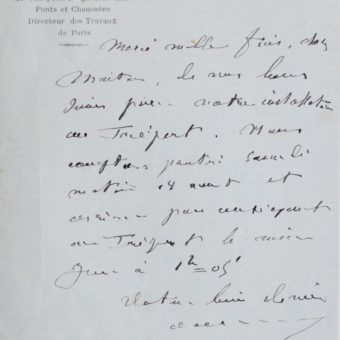 Ponts et Chaussées
Directeur des Travaux
de Paris
Merci mille fois, cher
Maître, de vos bons
pour notre installation
au Tréport. Nous
comptons partir samedi
matin 18 août et
au Tréport le même
jour à 1h=05'
Votre bien dévoué